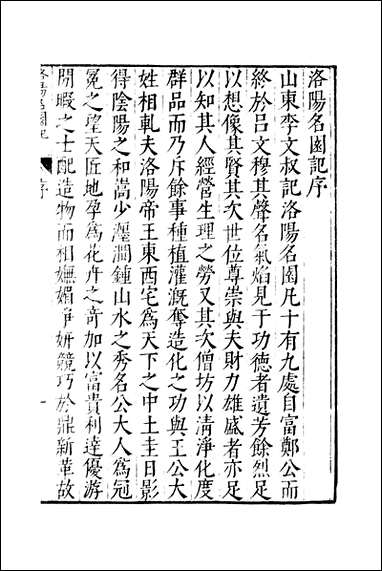 洛陽名園記序
山東李文叔記洛陽名園凡十有九處自富鄭公而
終於呂文穆其聲名氣焰見于功德者遺芳餘烈足
以想像其賢其次世位尊崇與夫財力雄盛者亦足
以知其人經營生理之勞又其次僧坊以清淨化度
群品而乃斥餘事種植灌漑奪造化之功與王公大
姓相軋夫洛陽帝王東西宅為天下之中土圭日影
得陰陽之和嵩少瀍澗鍾山水之秀名公大人為冠
冕之望天匠地孕為花卉之竒加以富貴利達優游
閒暇之士配造物而相嫵媚爭妍競巧於鼎新革故
洛陽名園記
序
一